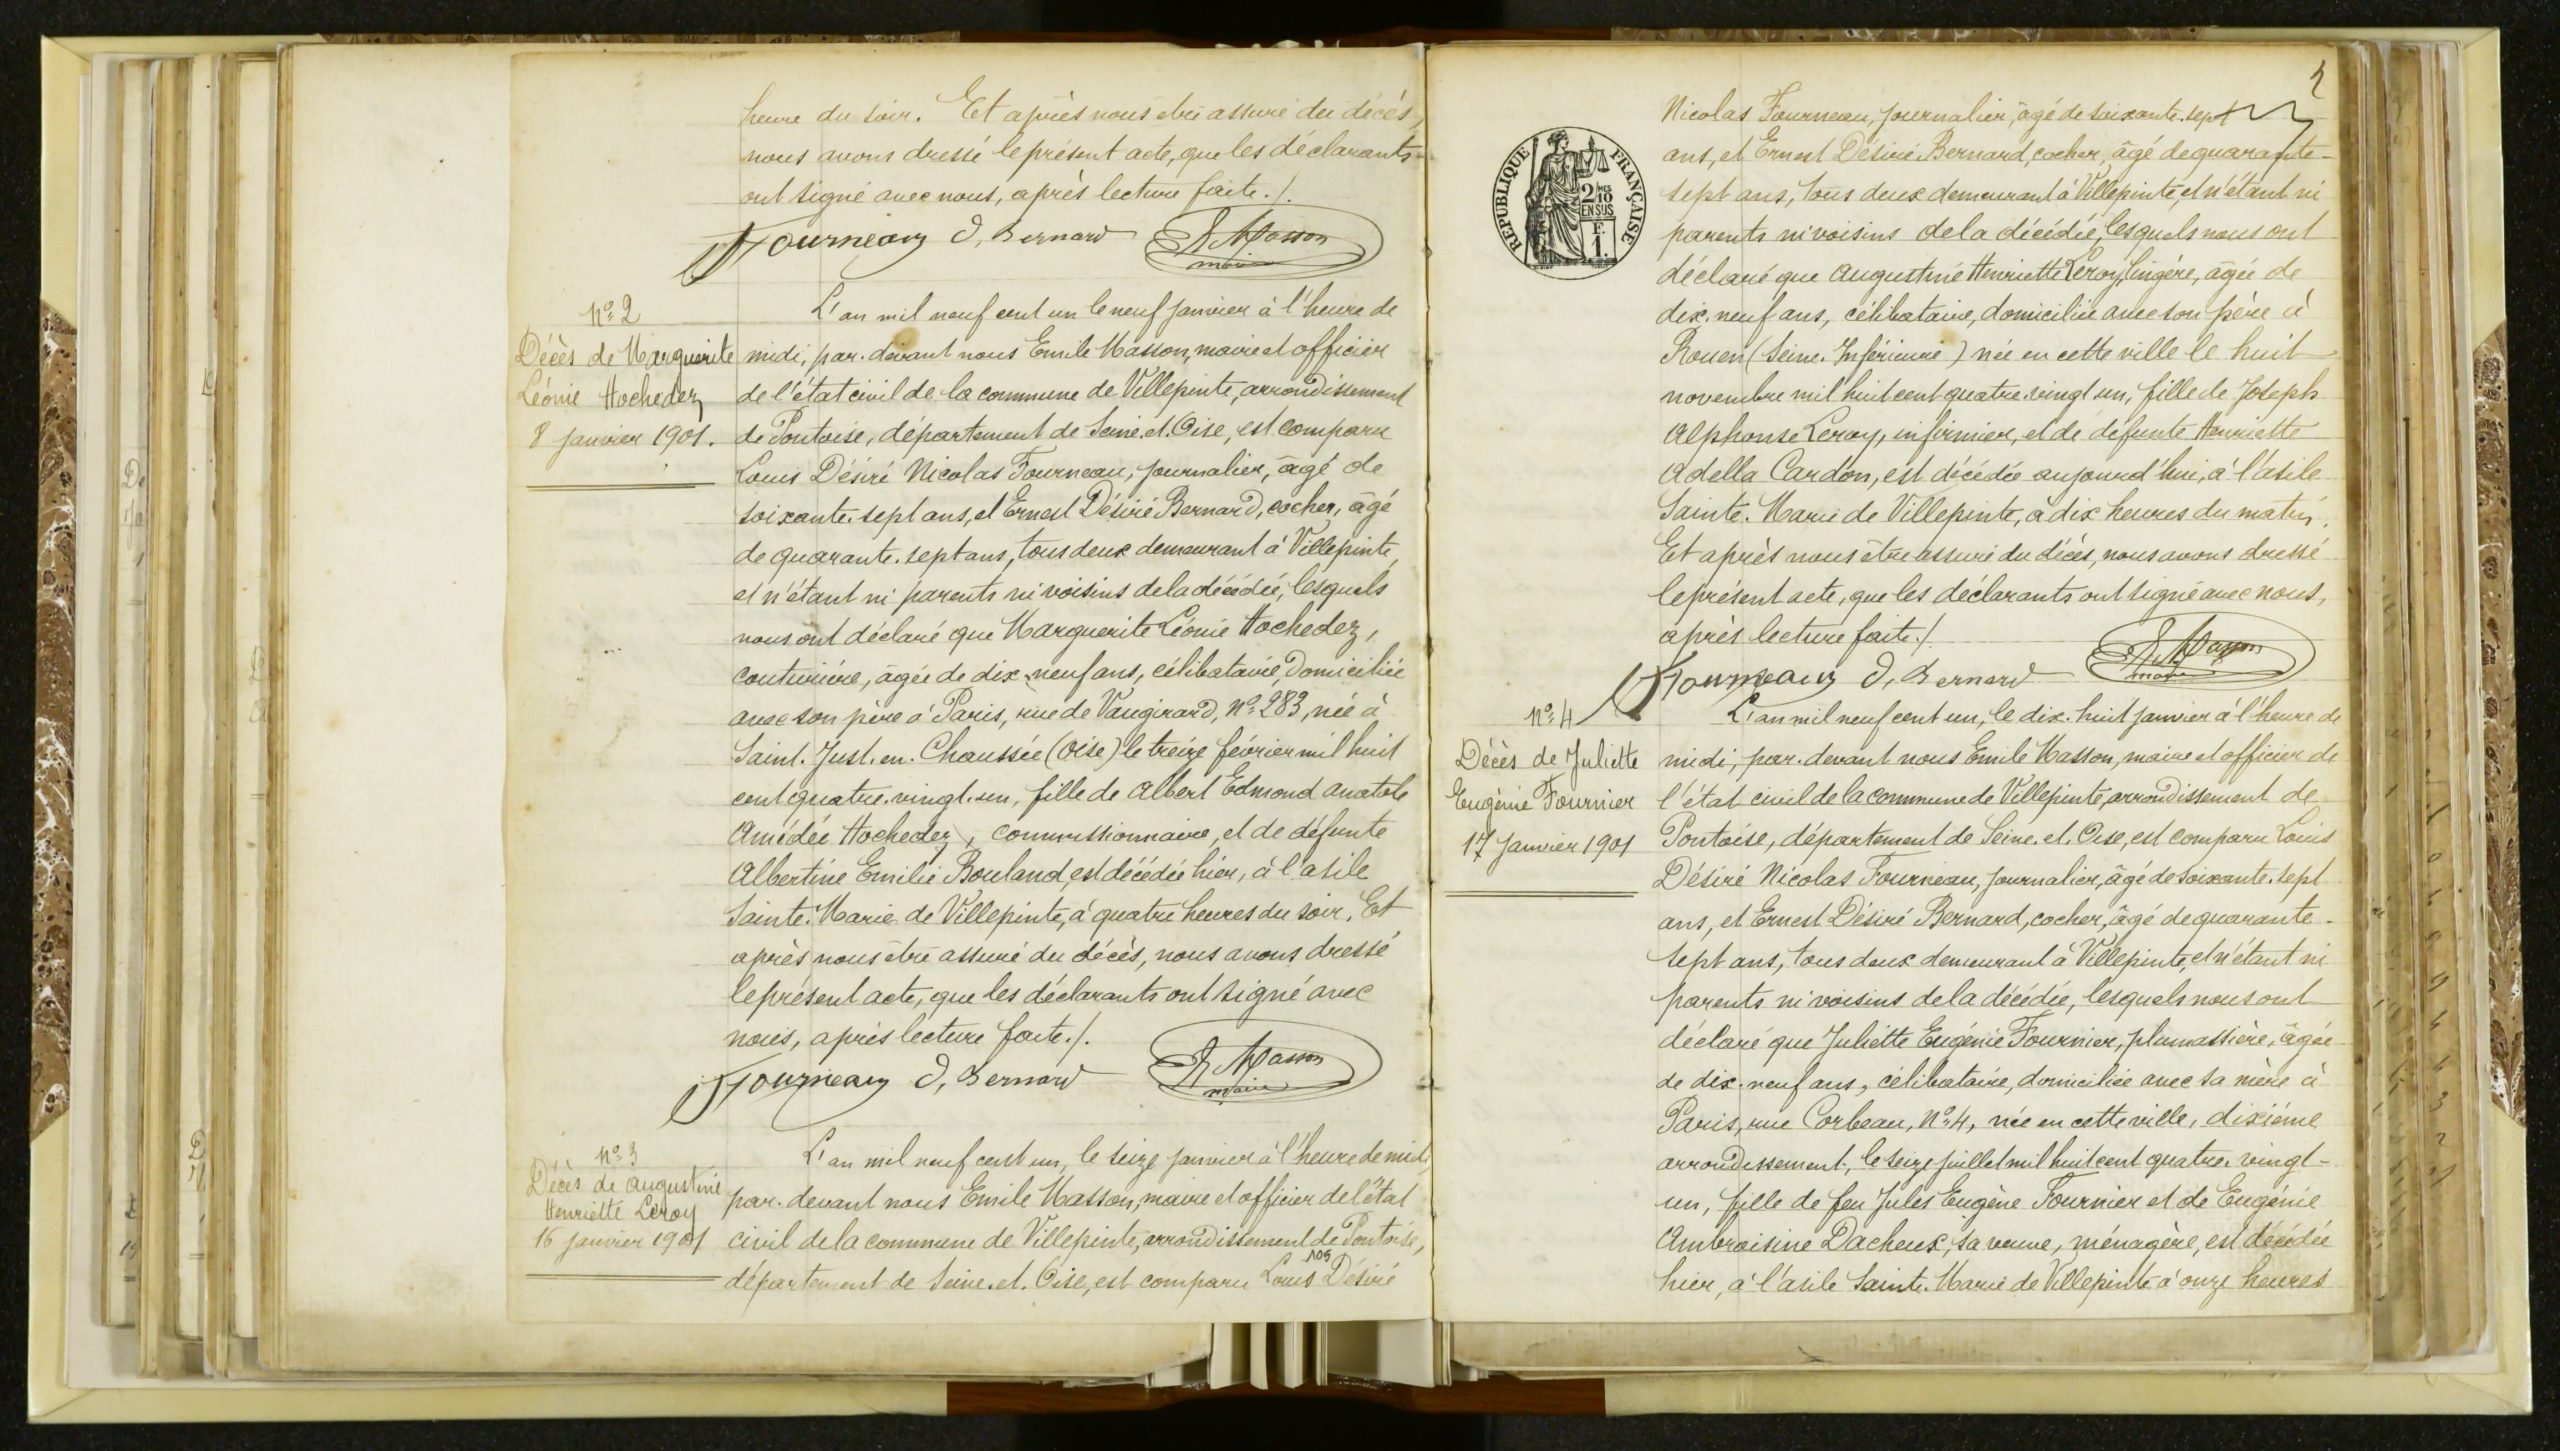 heure du soir. Et après nous être assuré du décès,
nous avons dressé le présent acte, que les déclarants
ont signé avec nous, après lecture faite./.
Fourneau D. Bernard E. Masson
maire
N° 2
Décès de Marguerite
Léonie Hochedez
8 janvier 1901.
L'an mil neuf cent un le neuf janvier à l'heure de
midi, par-devant nous Emile Masson, maire et officier
de l'état civil de la commune de Villepinte, arrondissement
de Pontoise, département de Seine-et-Oise, est comparu
Louis Désiré Nicolas Fourneau, journalier, âgé de
soixante-sept ans, et Ernest Désiré Bernard, cocher, âgé
de quarante-sept ans, tous deux demeurant à Villepinte,
et n'étant ni parents ni voisins de la décédée, lesquels
nous ont déclaré que Marguerite Léonie Hochedez,
couturière, âgée de dix-neuf ans, célibataire, domiciliée
avec son père à Paris, rue de Vaugirard, N° 283, née à
Saint-Just-en-Chaussée (Oise) le treize février mil huit
cent quatre-vingt-un, fille de Albert Edmond Anatole
Amédée Hochedez, commissionnaire, et de défunte
Albertine Emilie Bouland, est décédée hier, à l'asile
Sainte-Marie de Villepinte, à quatre heures du soir. Et
après nous être assuré du décès, nous avons dressé
le présent acte, que les déclarants ont signé avec
nous, après lecture faite./.
Fourneau D. Bernard E. Masson
maire
N° 3
Décès de Augustine
Henriette Leroy
16 janvier 1901
L'an mil neuf cent un, le seize janvier à l'heure de midi,
par-devant nous Emile Masson, maire et officier de l'état
civil de la commune de Villepinte, arrondissement de Pontoise,
département de Seine-et-Oise, est comparu Louis Désiré
Nicolas Fourneau, journalier, âgé de soixante-sept
ans, et Ernest Désiré Bernard, cocher, âgé de quarante-
sept ans, tous deux demeurant à Villepinte, et n'étant ni
parents ni voisins de la décédée, lesquels nous ont
déclaré que Augustine Henriette Leroy, lingère, âgée de
dix-neuf ans, célibataire, domiciliée avec son père à
Rouen (Seine-Inférieure) née en cette ville le huit
novembre mil huit cent quatre-vingt-un, fille de Joseph
Alphonse Leroy, infirmier, et de défunte Henriette
Adella Cardon, est décédée aujourd'hui, à l'asile
Sainte-Marie de Villepinte, à dix heures du matin.
Et après nous être assuré du décès, nous avons dressé
le présent acte, que les déclarants ont signé avec nous,
après lecture faite./.
Fourneau D. Bernard E. Masson
maire
RÉPUBLIQUE FRANÇAISE
2/10
EN SUS
F.
1.
N° 4
Décès de Juliette
Eugénie Fournier
17 janvier 1901
L'an mil neuf cent un, le dix-huit janvier à l'heure de
midi, par-devant nous Emile Masson, maire et officier de
l'état civil de la commune de Villepinte, arrondissement de
Pontoise, département de Seine-et-Oise, est comparu Louis
Désiré Nicolas Fourneau, journalier, âgé de soixante-sept
ans, et Ernest Désiré Bernard, cocher, âgé de quarante-
sept ans, tous deux demeurant à Villepinte, et n'étant ni
parents ni voisins de la décédée, lesquels nous ont
déclaré que Juliette Eugénie Fournier, plumassière, âgée
de dix-neuf ans, célibataire, domiciliée avec sa mère à
Paris, rue Corbeau, N° 4, née en cette ville, dixième
arrondissement, le seize juillet mil huit cent quatre-vingt-
un, fille de feu Jules Eugène Fournier et de Eugénie
Ambroisine Dacheux, sa veuve, ménagère, est décédée
hier, à l'asile Sainte-Marie de Villepinte à onze heures